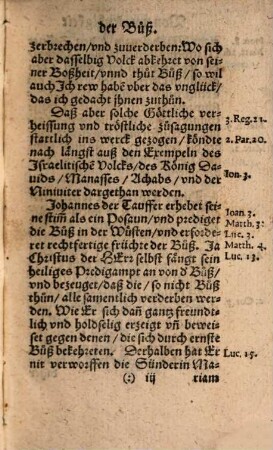 der Büß.
zerbrechen/vnd zuuerderben: Wo sich
aber dasselbig Volck abkehret von sei-
ner Boßheit/vnnd thůt Büß/so wil
auch Jch rew habẽ vber das vnglück/
das ich gedacht jhnen zuthůn.
Daß aber solche Göttliche ver-
heissung vnd tröstliche zůsagungen
stattlich ins werck gezogen/köndte
nach längst auß den Exempeln des
Jsraelitischẽ Volcks/des König Da-
uids/Manasses/Achabs/vnd der
Niniuiter dargethan werden.
Johannes der Tauffer erhebet sei-
ne stiṁ als ein Posaun/vnd prediget
die Büß in der Wüsten/vnd erforde-
ret rechtfertige früchte der Büß. Ja
Christus der HErr selbst fängt sein
heiliges Predigampt an von d' Büß/
vnd bezeuget/daß die/so nicht Büß
thůn/alle samentlich verderben wer-
den. Wie Er sich dañ gantz freundt-
lich vnd holdselig erzeigt vñ bewei-
set gegen denen/die sich durch ernste
Büß bekehreten. Derhalben hat Er
nit verworffen die Sünderin Ma-
(:) iij riam
3. Reg. 21.
2. Par. 20.
Jon. 3.
Joan 3.
Matth. 3.
Luc. 3.
Matth. 4.
Luc. 13.
Luc. 15.